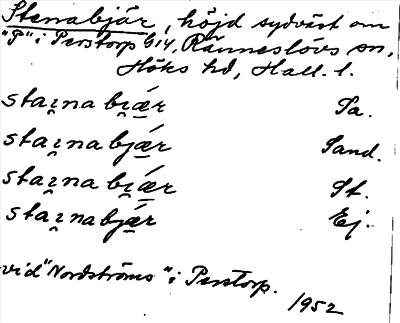 Stenabjär, höjd sydväst om
"P" i Perstorp G14, Ränneslövs sn,
Höks hd, Hall. l.
staı̯na bı̯ǽr Sa.
staı̯na bjǽr Sand.
staı̯na bı̯ǽr St.
staı̯nabjǽr Ej.
vid "Nordströms" i Perstorp.
1952